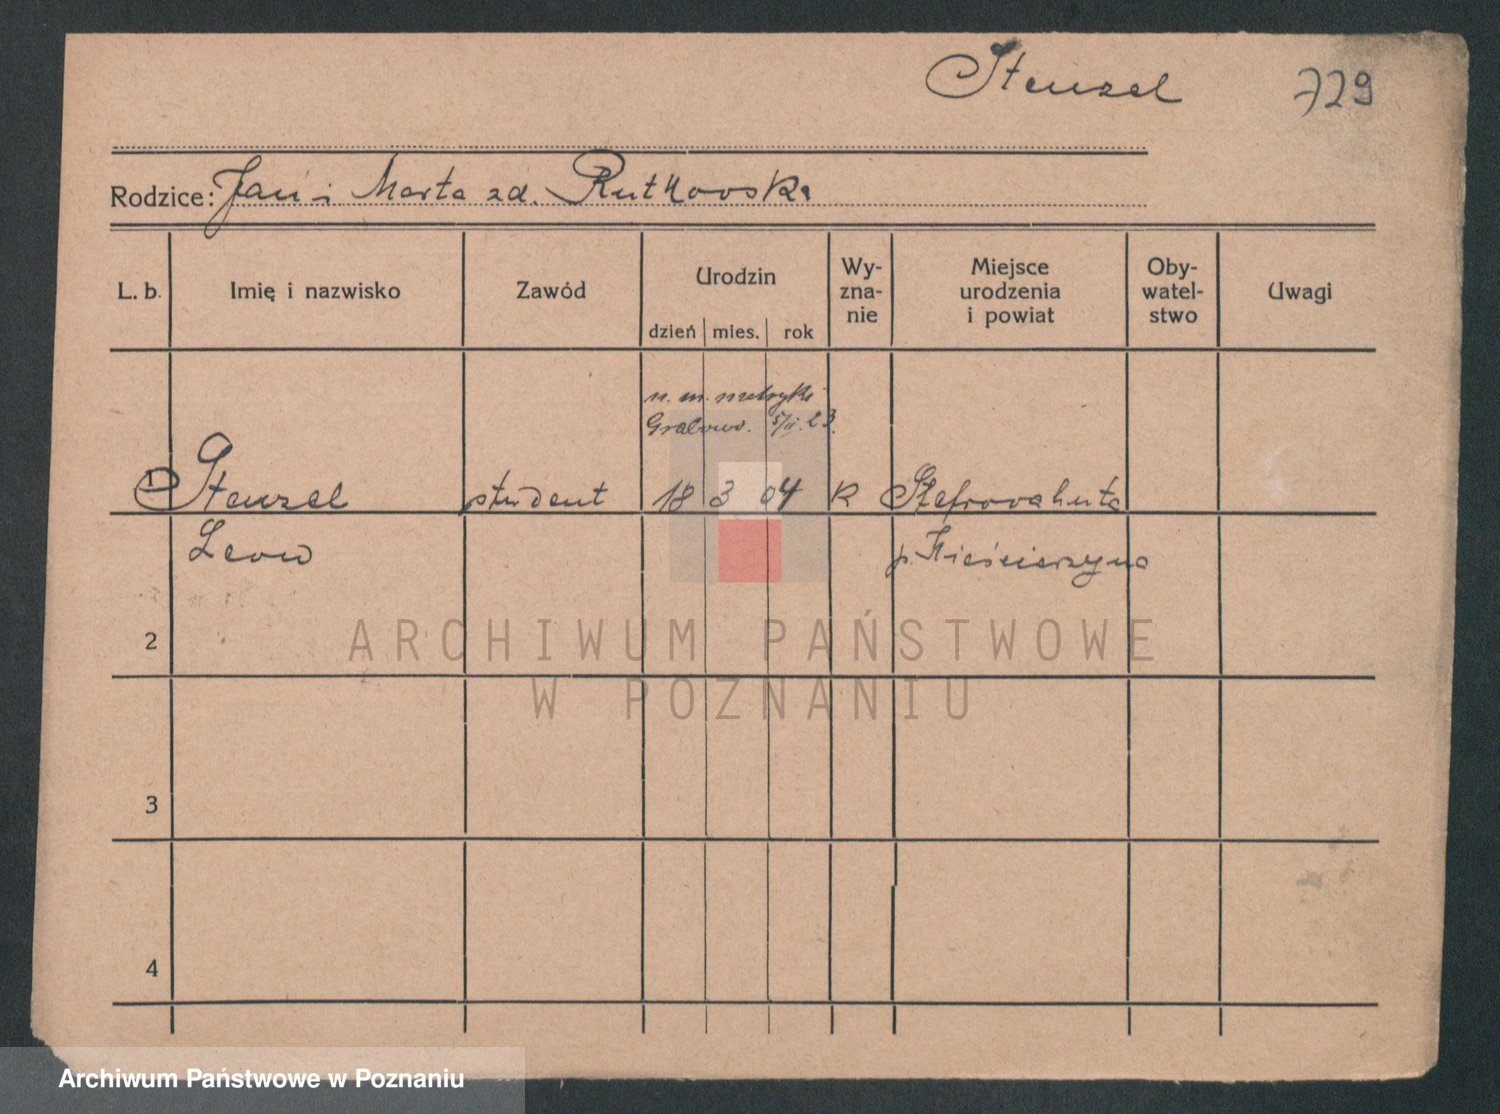 Stenzel 729
Rodzice: Jan i Marta zd. Rutkowska
L. b. Imię i nazwisko Zawód Urodzin dzień mies. rok Wyznanie Miejsce urodzenia i powiat Obywatelstwo Uwagi
n. m. metryki
Grabowo. 5/II. 23.
1 Stenzel student 18 3 04 k
Leon p. Kieścierzyna
2
ARCHIWUM PAŃSTWOWE
W POZNANIU
3
4
Archiwum Państwowe w Poznaniu